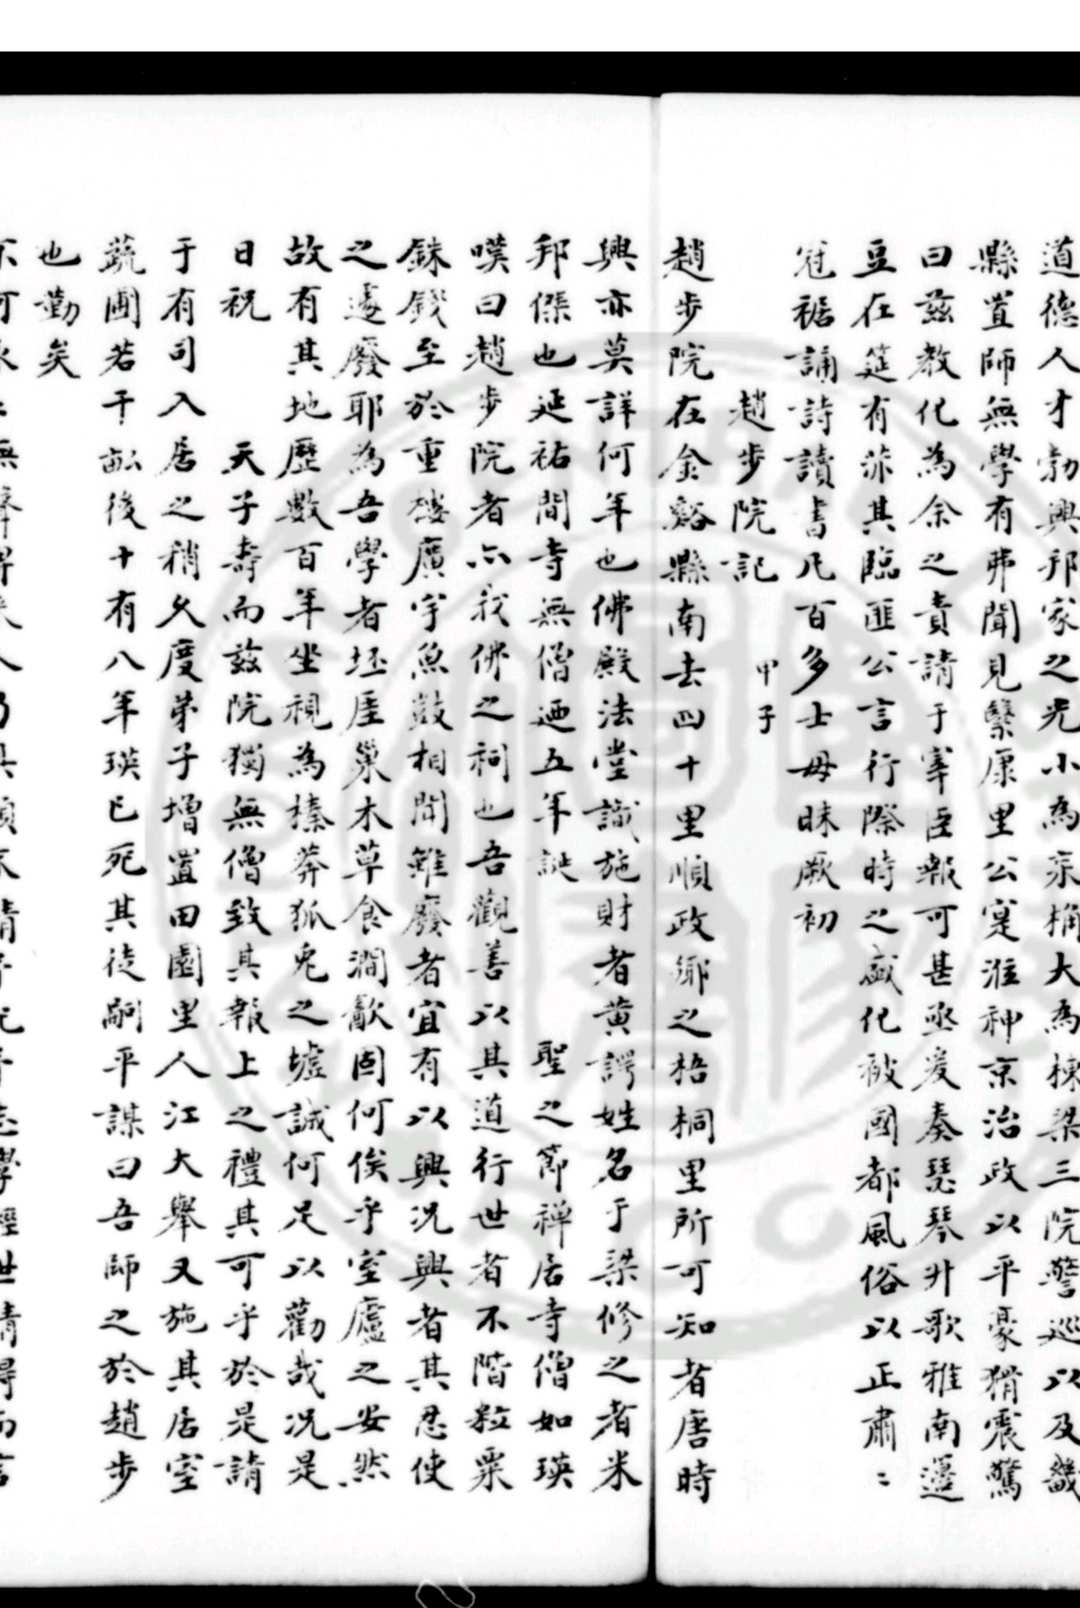 道德人才勃興邦家之光小為宋桷大為棟梁三院警巡以及畿
縣置師無學有弗聞見繄康里公寔淮神京治政以平豪猾震驚
曰茲教化為余之責請于宰臣報可甚亟爰奏瑟琴升歌雅南籩
豆在筵有泲其臨匪公言行際時之盛化被國都風俗以正肅〻
冠裾誦詩讀書凡百多士毋昧厥初
趙步院記 甲子
趙步院在金谿縣南去四十里順政鄉之梧桐里所可知者唐時
興亦莫詳何年也佛殿法堂識施財者黃諤姓名于梁修之者米
邦傑也延祐間寺無僧迺五年誕 聖之節禪居寺僧如瑛
嘆曰趙步院者亦我佛之祠也吾觀善以其道行世者不階粒粟
銖錢至於重樓廣宇魚鼓相聞雖廢者宜有以興況興者其忍使
之遽廢耶為吾學者坯厓巢木草食澗歠固何俟乎室廬之安然
故有其地歷數百年坐視為榛莽狐兎之墟誠何足以勸哉況是
日祝 天子壽而茲院獨無僧致其報上之禮其可乎於是請
于有司入居之稍久度弟子增置田園里人江大舉又施其居室
蔬圃若干畝後十有八年瑛已死其徒嗣平謀曰吾師之於趙步
也勤矣